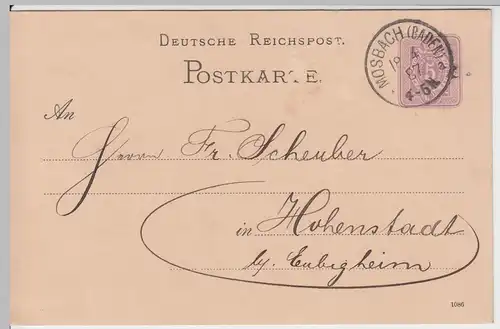 DEUTSCHE REICHSPOST.
POSTKARTE.
MOSBACH (BADEN)
18 4
87
4-5N.
5
An
Herrn Fr. Scheuber
in Hohenstadt
by. Eubigheim
1086